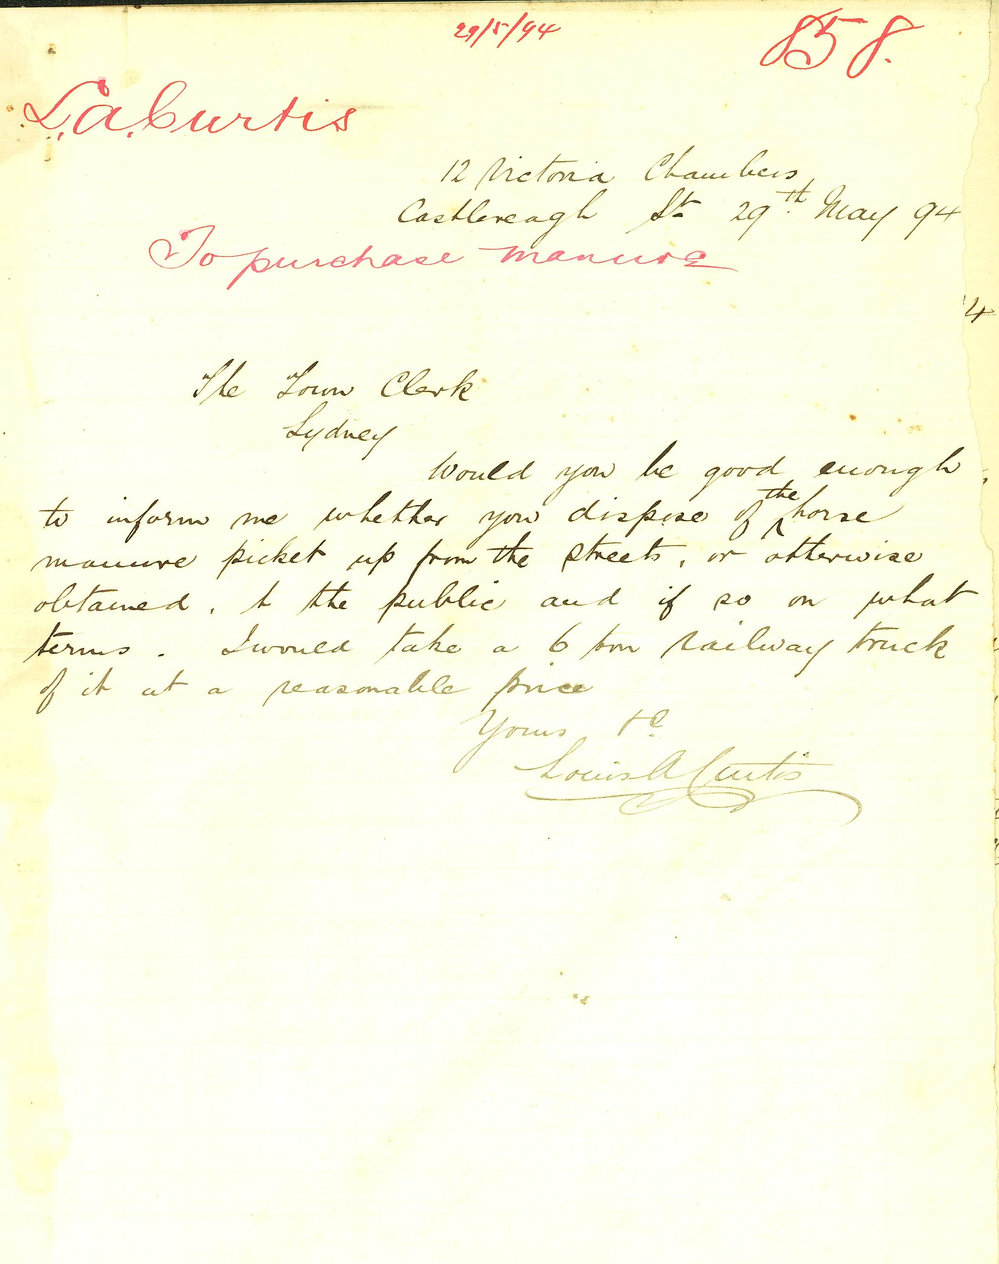 29/5/94
858.
L. A. Curtis
12 Victoria Chambers
Castlereagh St 29th. May 94
To purchase manure
'4
The Town Clerk
Sydney
Would you be good enough
to inform me whether you dispose of the horse
manure picket up from the streets, or otterwise
obtained, to the public and if so on what
terms. I would take a 6 ton railway truck
of it at a reasonable price
Yours &c
Louis A Curtis